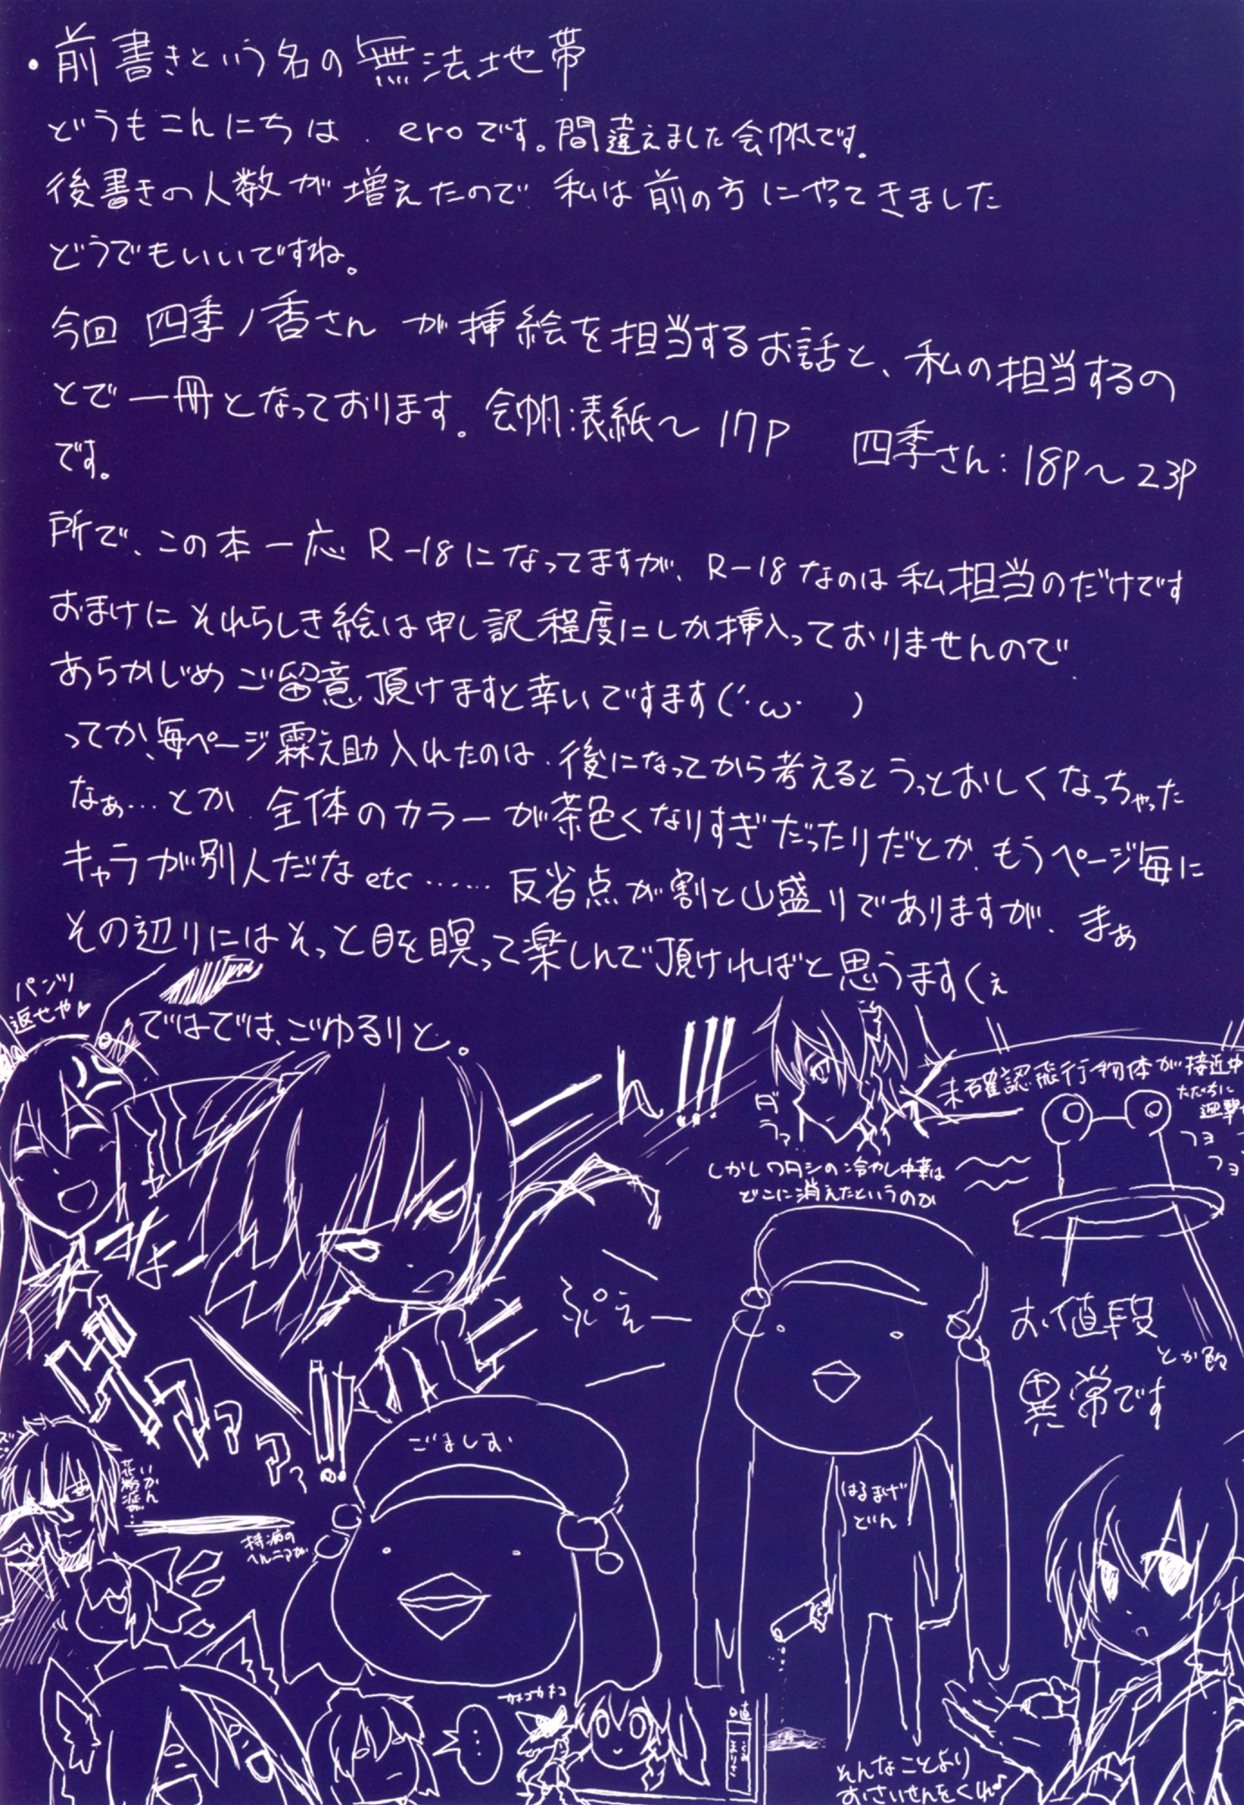 ・前書きという名の無法地帯
どうもこんにちは、eroです。間違えました会帆です。
後書きの人数が増えたので 私は前の方にやってきました
どうでもいいですね。
今回 四季ノ香さん が挿絵を担当するお話と、私の担当するの
とで一冊となっております。会帆:表紙～17P 四季さん:18P～23P
です。
所で、この本一応R-18になってますが、R-18なのは私担当のだけです
おまけにそれらしき絵は申し訳程度にしか挿入っておりませんので
あらかじめご留意頂けますと幸いですます(´･ω･ )
ってか、毎ページ霖之助入れたのは、後になってから考えるとうっとおしくなっちゃった
なぁ…とか 全体のカラーが茶色くなりすぎだったりだとか、もうページ毎に
キャラが別人だなetc……反省点が割と山盛りでありますが、まぁ
その辺りにはそっと目を瞑って楽しんで頂ければと思うますくぇ
ではでは、ごゆるりと。
パンツ
返せや♥
ん!!!
ダラァ
未確認飛行物体が接近中
ただちに
迎撃
フヨ
フヨ
しかしワタシの冷やし中華は
どこに消えたというのか
みょー
ぷえー
お値段
とか色々
異常です
ごましお
はるまげ
どん
いかん
花粉症が…
持病の
ヘルニアが
…
カキコカキコ
そんなことより
おさいせんをくれ